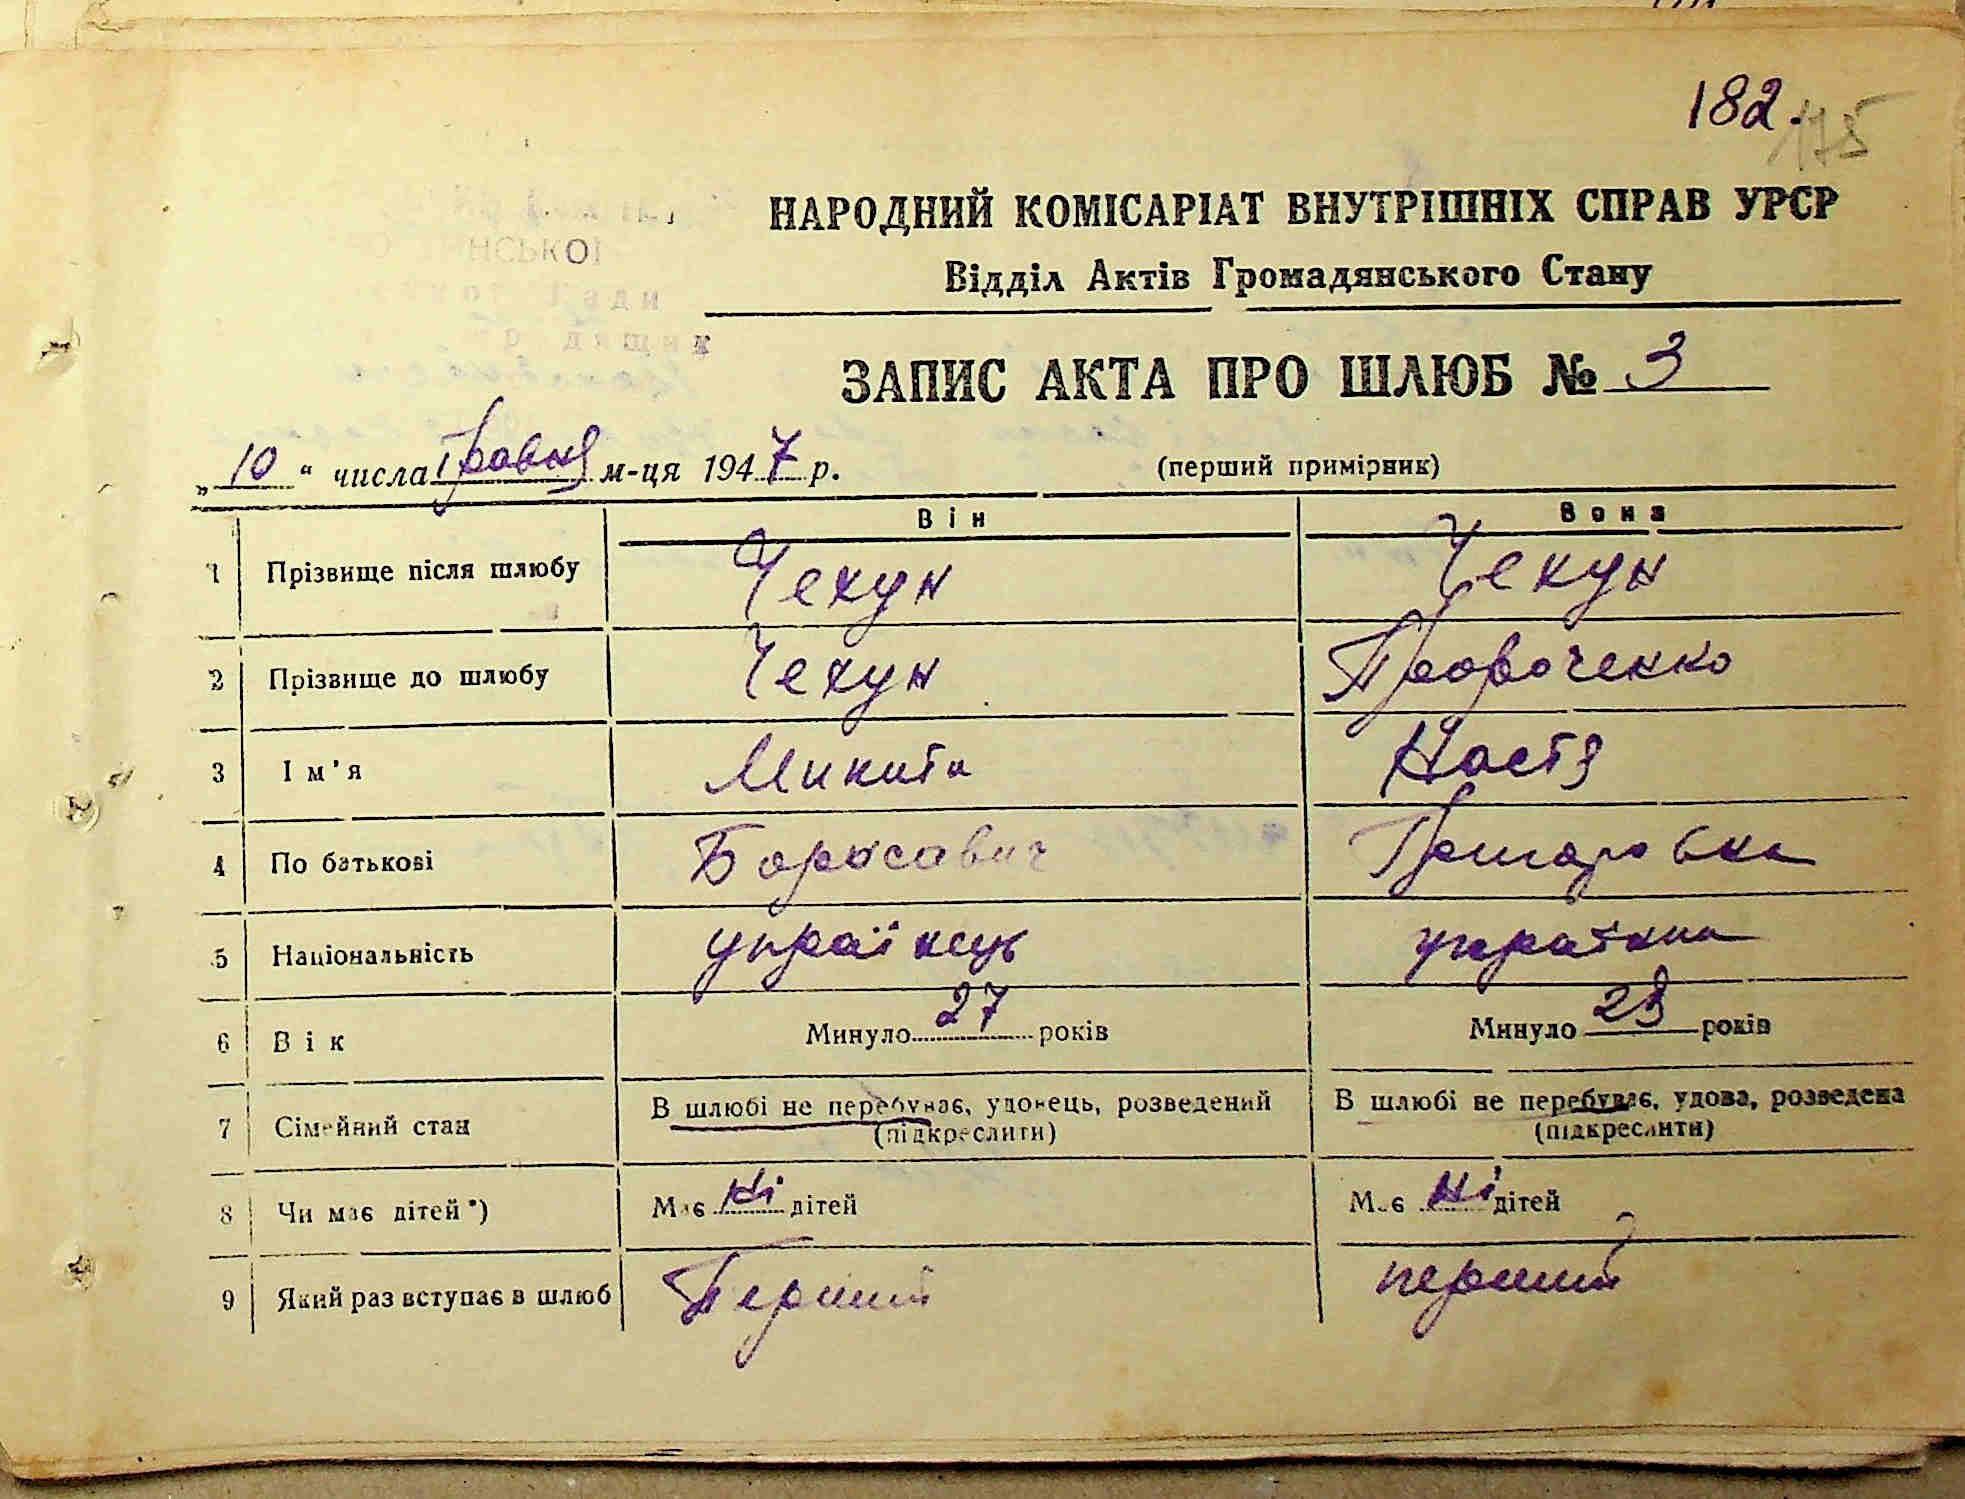 182.
175
НАРОДНИЙ КОМІСАРІАТ ВНУТРІШНІХ СПРАВ УРСР
Відділ Актів Громадянського Стану
ЗАПИС АКТА ПРО ШЛЮБ № 3
„10“ числа травня м-ця 1947 р. (перший примірник)
Він Вона
1 Прізвище після шлюбу Чехун Чехун
2 Прізвище до шлюбу Чехун
3 Ім’я Микита Настя
4 По батькові Борисавич
5 Національність українець українка
6 Вік Минуло 27 років Минуло 23 років
7 Сімейний стан В шлюбі не перебуває, удовець, розведений В шлюбі не перебуває, удова, розведена
(підкреслити) (підкреслити)
8 Чи має дітей*) Має ні дітей Має ні дітей
9 Який раз вступає в шлюб Перший перший